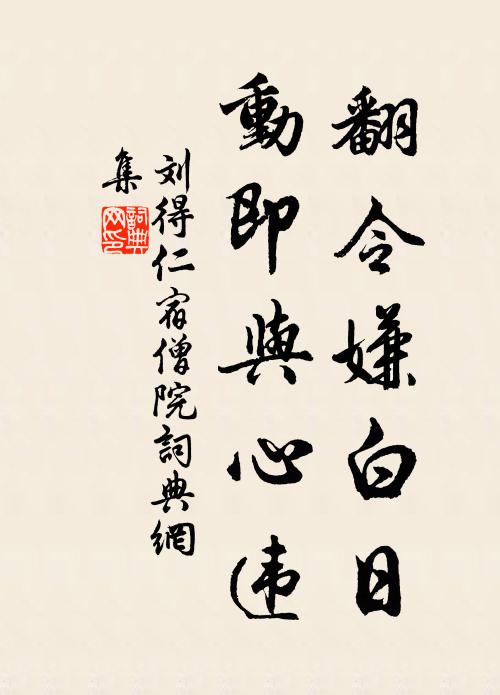 翻令嫌白日
動即與心违
刘得仁宿僧院詞典網
集
詞典網印